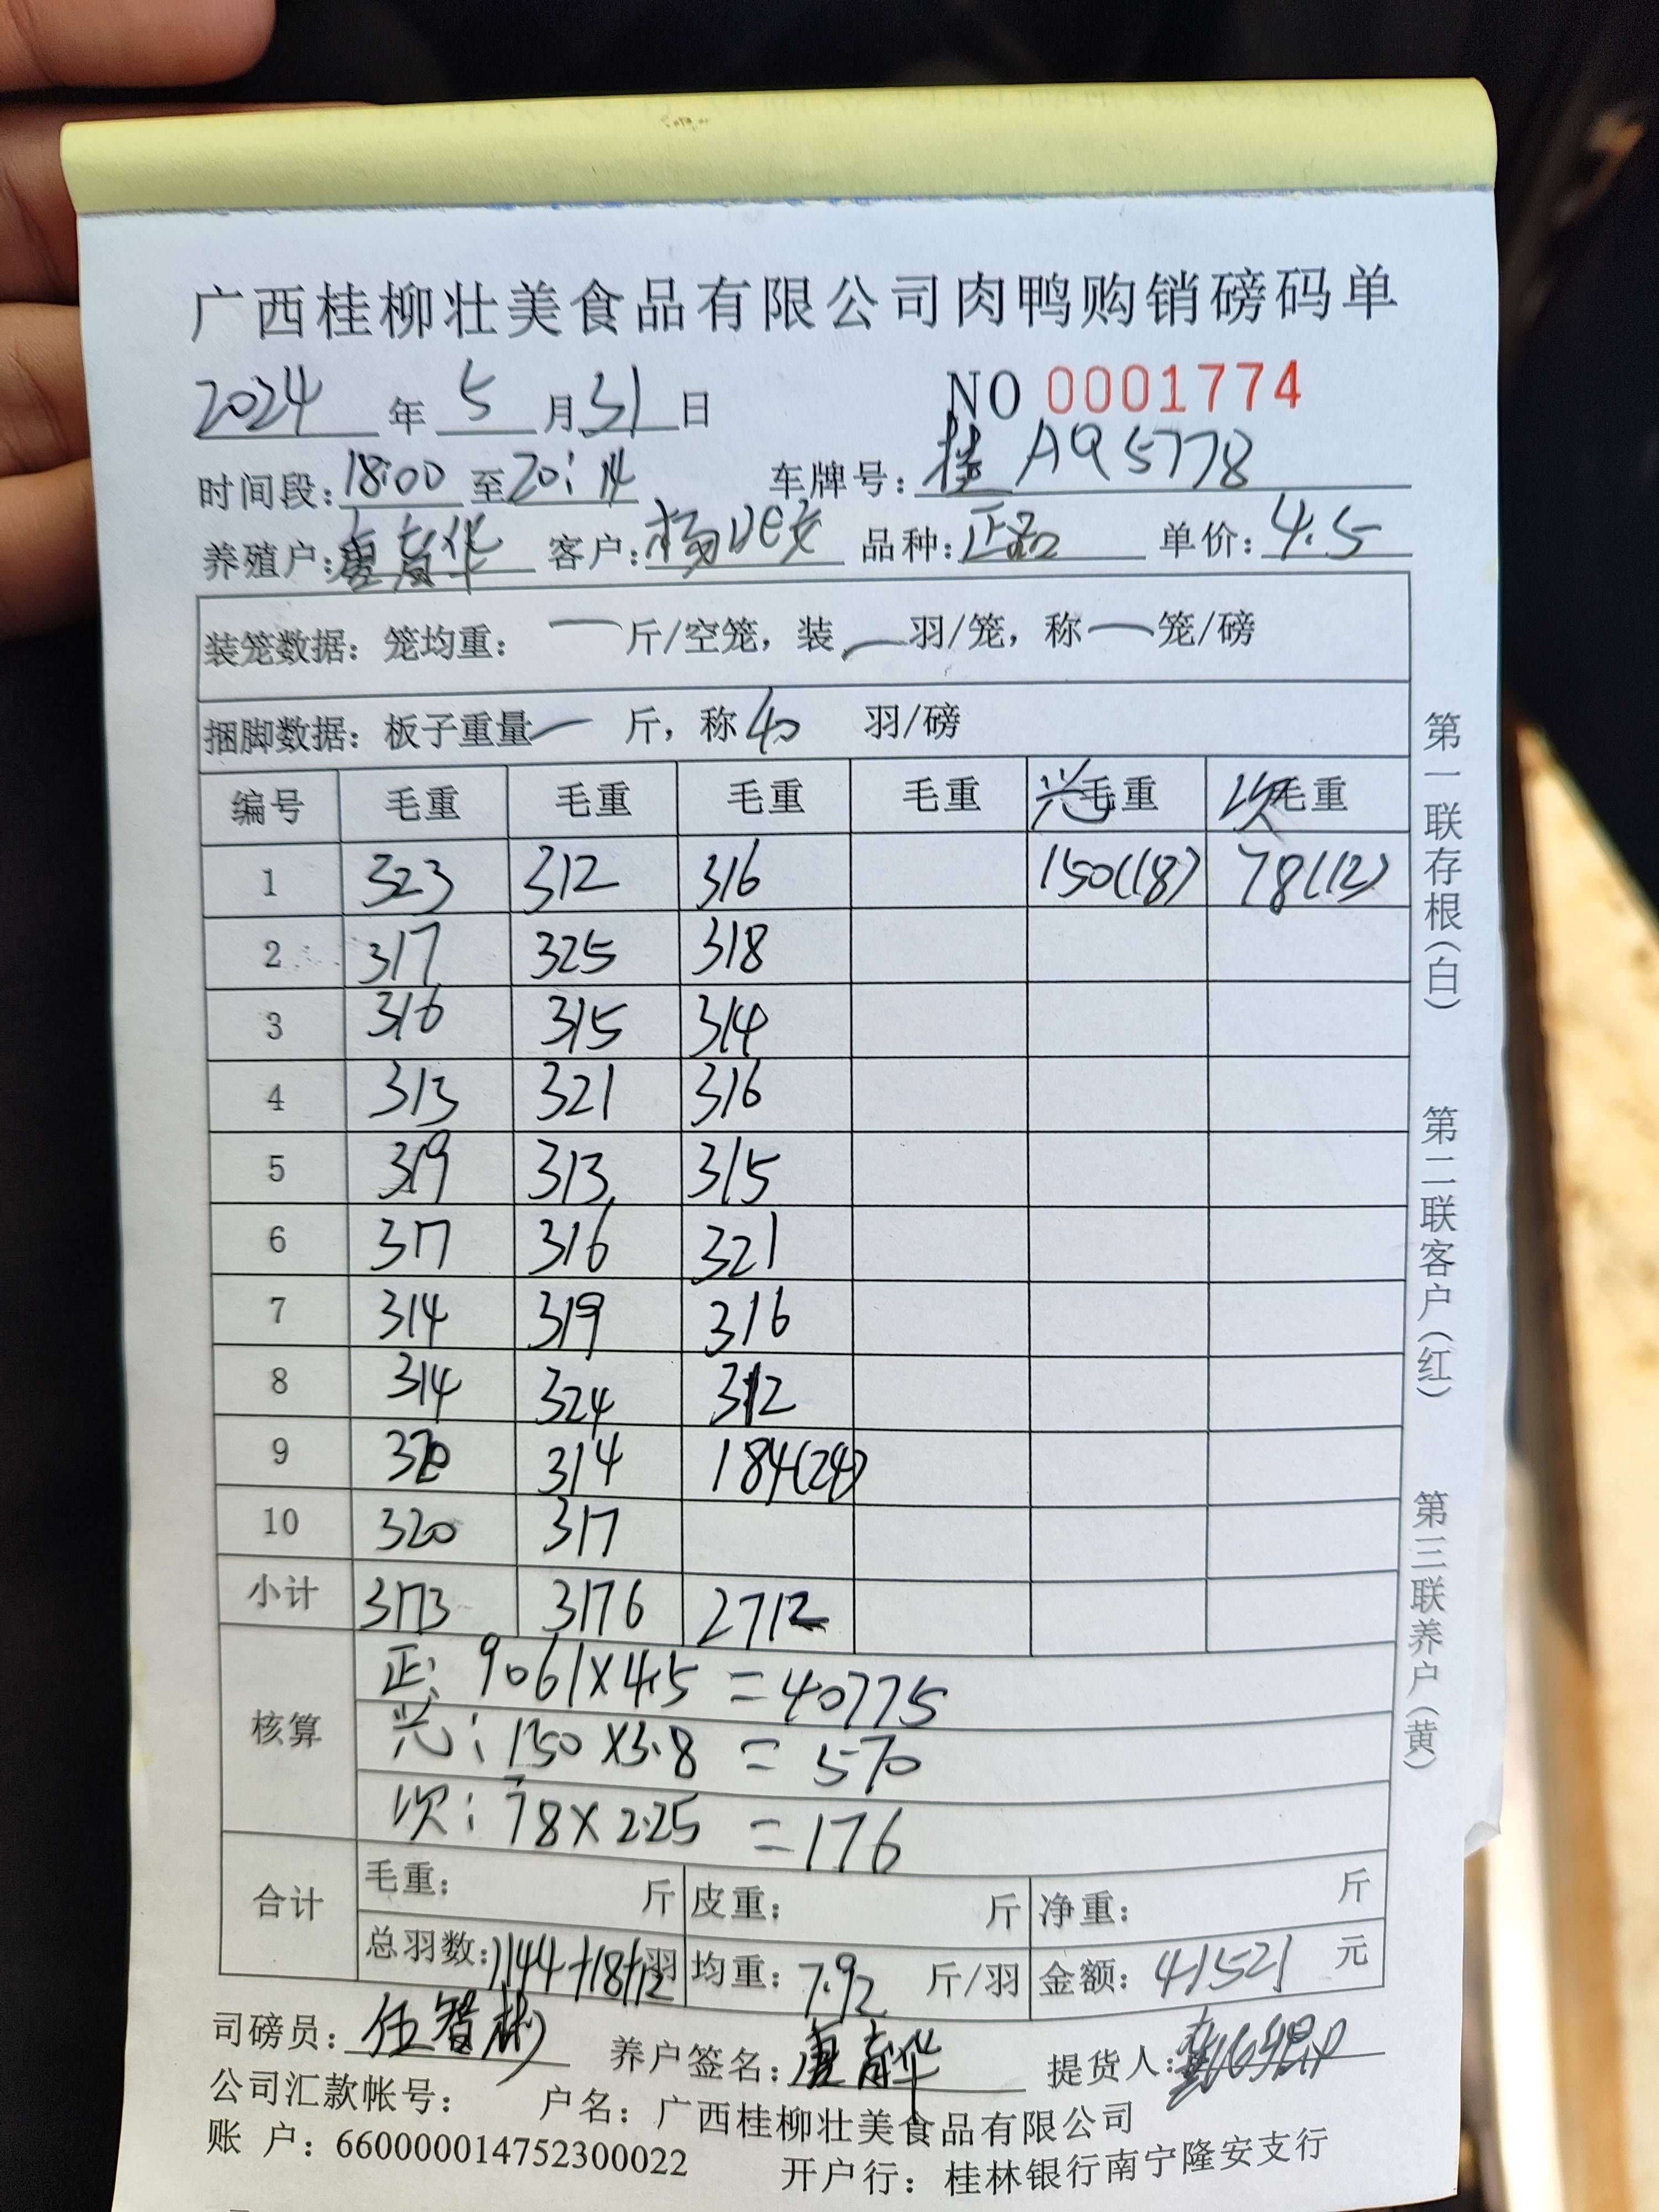 广西桂柳壮美食品有限公司肉鸭购销磅码单
2024 年 5 月 31 日 NO 0001774
时间段: 18:00 至 20:14 车牌号: 桂 AQ5778
养殖户: 华 客户: 杨 品种: 正品 单价: 4.5
装笼数据: 笼均重: 一 斤/空笼, 装 一 羽/笼, 称 一 笼/磅
捆脚数据: 板子重量 一 斤, 称 40 羽/磅
编号 毛重 毛重 毛重 毛重 兴毛重 次毛重
1 323 312 316 150(18) 78(12)
2 317 325 318
3 316 315 314
4 313 321 316
5 319 313 315
6 317 316 321
7 314 319 316
8 314 324 312
9 320 314 184(24)
10 320 317
小计 3173 3176 2712
核算 正: 9061×4.5 = 40775
兴: 150×3.8 = 570
次: 78×2.25 = 176
合计 毛重: 斤 皮重: 斤 净重: 斤
总羽数: 1144+18+12 羽 均重: 7.92 斤/羽 金额: 41521 元
司磅员: 任智彬 养户签名: 华 提货人:
公司汇款帐号: 户名: 广西桂柳壮美食品有限公司
账 户: 660000014752300022 开户行: 桂林银行南宁隆安支行
第一联存根(白) 第二联客户(红) 第三联养户(黄)